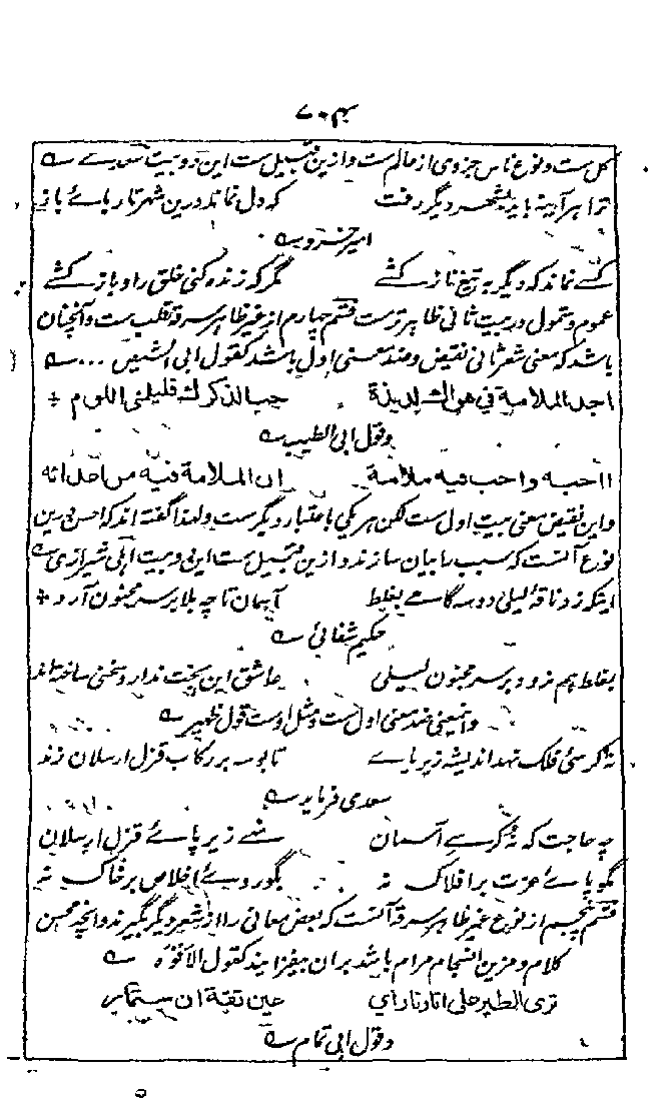 ۷۰۴
کل ست و نوع ناس جزوی از عالم ست و ازین قبیل ست این دو بیت
ترا هر آینه باید بشهر دیگر رفت که دل نماند درین شهر تا ربائے باز
امیر خسرو
کسے نماند که دیگر به تیغ ناز کشے مگر که زنده کنی خلق را و باز کشے
عموم و شمول در بیت ثانی ظاهر ترست قسم چهارم از غیر ظاهر سرقه قلب ست و آنچنان
باشد که معنی شعر ثانی نقیض و ضد معنی اول باشد کقول ابی الشیص
اجد الملامة في هواك لذيذة حبا لذكرك فليلمني اللوم
وقول ابی الطیب
ااحبه واحب فيه ملامة ان الملامة فيه من اعدائه
و این نقیض معنی بیت اول ست لکن هر یکی باعتبار دیگر ست و لهذا گفته اند که احسن درین
نوع آنست که سبب را بیان سازند و ازین قبیل ست این دو بیت اهلی شیرازی
اینکه زد ناقهٔ لیلی دو سه گامے بغلط آسمان تا چه بلا بر سر مجنون آرد
حکیم شفائی
بغلط هم نرود بر سر مجنون لیلی عاشق این بخت ندارد سخنی ساخته اند
و این معنی ضد معنی اول ست و مثل اوست قول ظهیر
نه کرسئ فلک نهد اندیشه زیر پاے تا بوسه بر رکاب قزل ارسلان زند
سعدی فرماید
چه حاجت که نه کرسے آسمان نهے زیر پائے قزل ارسلان
مگو پاے عزت بر افلاک نه بگو روے اخلاص بر خاک نه
قسم پنجم از نوع غیر ظاهر سرقه آنست که بعض معانی را از شعر دیگر بگیرند و آنچه محسن
کلام و مزین انسجام مرام باشد بران بیفزایند کقول الافوه
ترى الطير على اثارنا راي عين ثقة ان ستمار
وقول ابی تمام